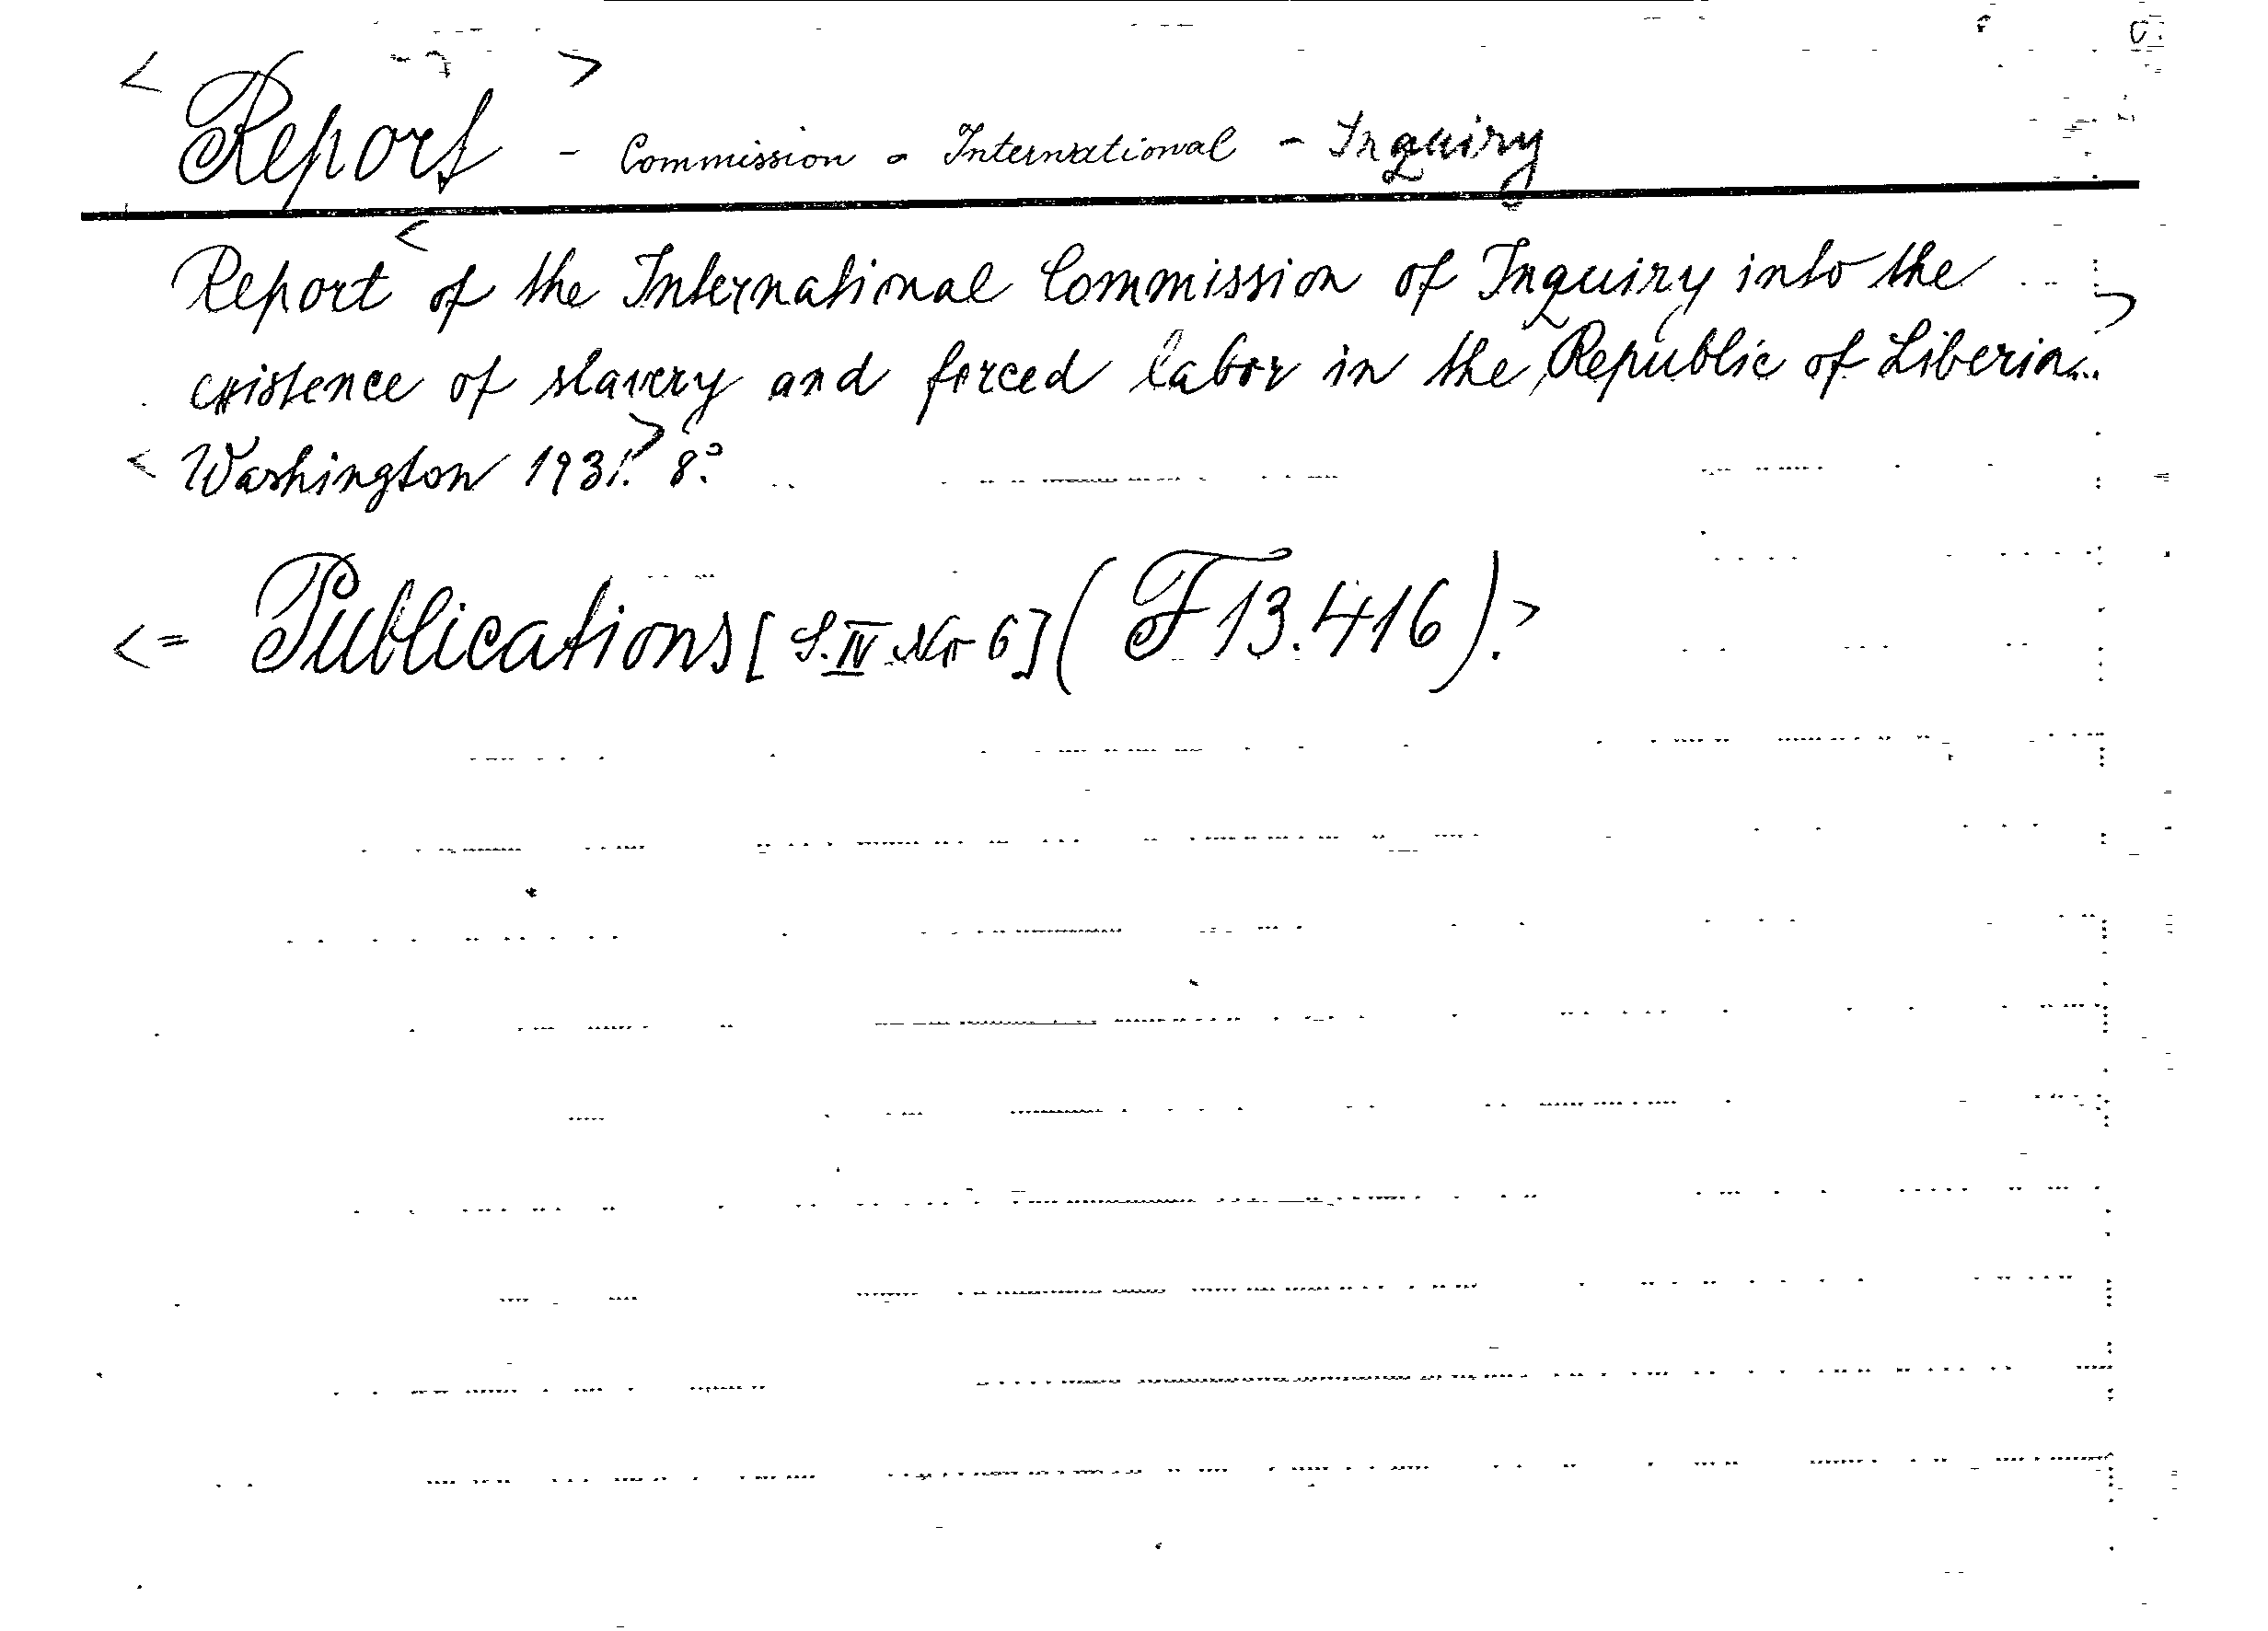 < Report > - Commission - International - Inquiry
Report < of the International Commission of Inquiry into the
existence of slavery and forced labor in the Republic of Liberia. >
< Washington 1931. > 8°.
< = Publications [S. IV Nr 6] (F 13.416). >